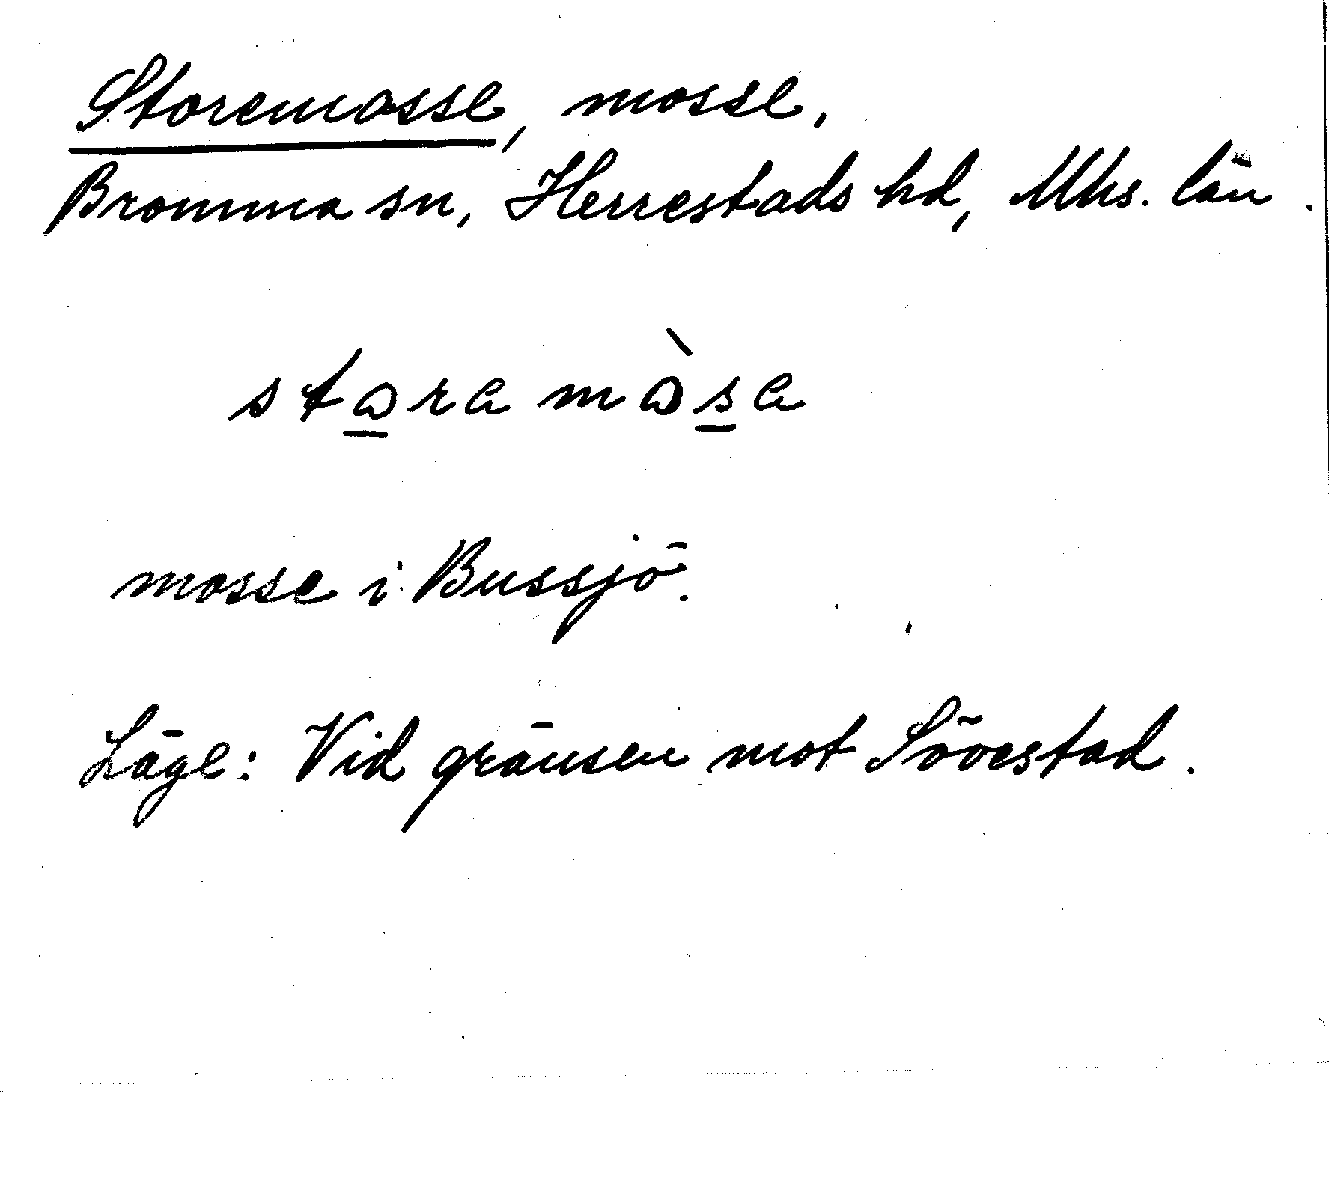 Storemosse, mosse.
Bromma sn, Herrestads hd, Mhs. län.
stɷra mɷ̀sa
mosse i Bussjö.
Läge: Vid gränsen mot Sövestad.